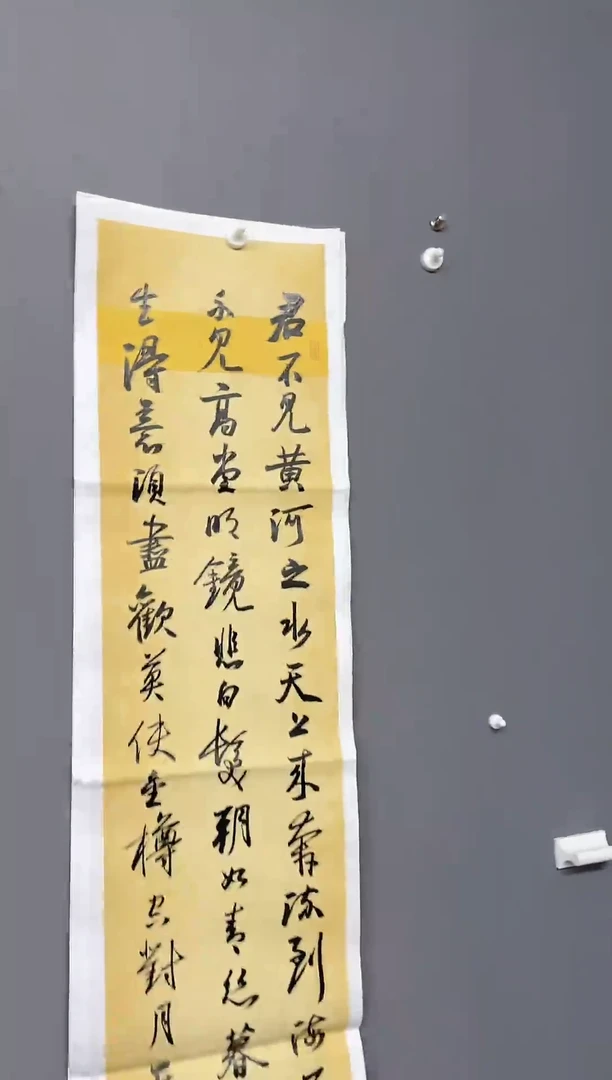 君不見黄河之水天上來奔流到海
不見高堂明鏡悲白髮朝如青絲暮
生得意須盡歡莫使金樽空對月